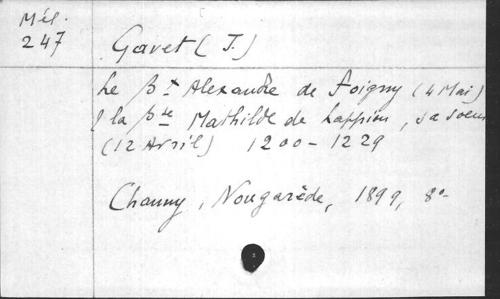 Mél.
247
Gavet (J.)
Le Bt Alexandre de Foigny (4 Mai)
& la Bse Mathilde de Lappion, sa soeur
(12 Avril) 1200-1229
Chauny, Nougarède, 1899, 8o